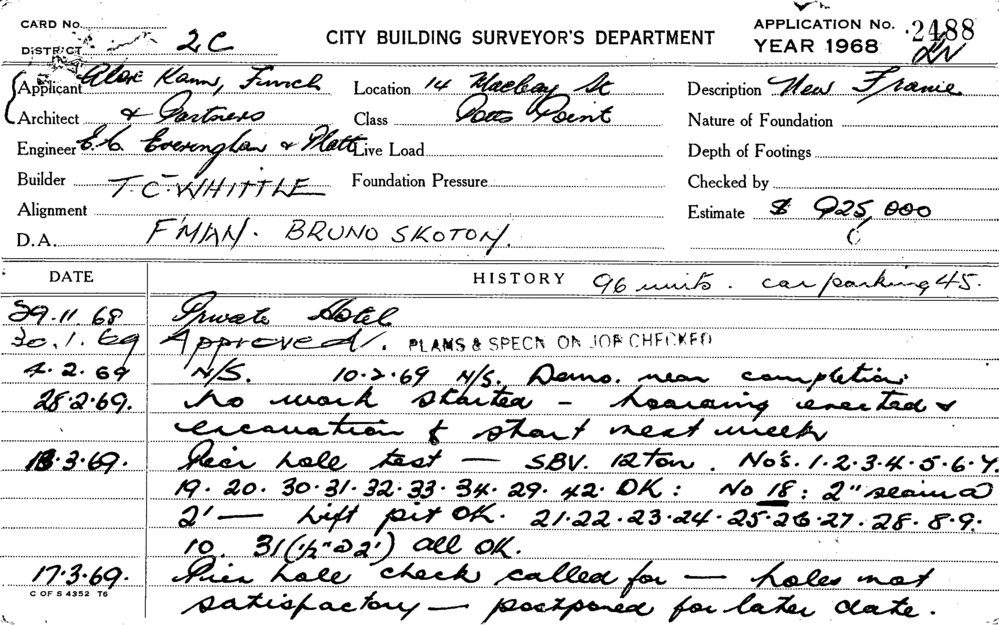 CARD No.
DISTRICT 2C
CITY BUILDING SURVEYOR'S DEPARTMENT
APPLICATION No. 2488
YEAR 1968
Applicant
Location 14 Macleay St
Description New Frame
Architect & Partners
Class Potts Point
Nature of Foundation
Engineer E.G. Everingham & Platt
Live Load
Depth of Footings
Builder T.C. WHITTLE
Foundation Pressure
Checked by
Alignment
Estimate $ 925,000
D.A. F'MAN. BRUNO SKOTON.
DATE HISTORY 96 units. car parking 45.
29.11 68 Private Hotel
30.1.69 Approved. PLANS & SPECN ON JOB CHECKED
4.2.69 N/S. 10.2.69 N/S. Demo. near completion.
28.2.69. No work started - hoarding erected &
excavation to start next week
13.3.69. Pier hole test - SBV. 12 ton. No's. 1.2.3.4.5.6.7.
19. 20. 30. 31. 32. 33. 34. 29. 42. OK: No 18: 2" seam @
2' - Lift pit OK. 21.22.23.24.25.26.27.28.8.9.
10. 31 (1/2" @ 2') all OK.
17.3.69. Pier hole check called for - holes not
C OF S 4352 T6
satisfactory - postponed for later date.